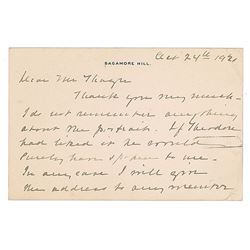 SAGAMORE HILL.
Oct 24th 192
Dear Mr Thayer
Thank you very much.
I do not remember anything
about the portrait. If Theodore
had liked it he would
surely have spoken to me.
In any case I will give
the address to any